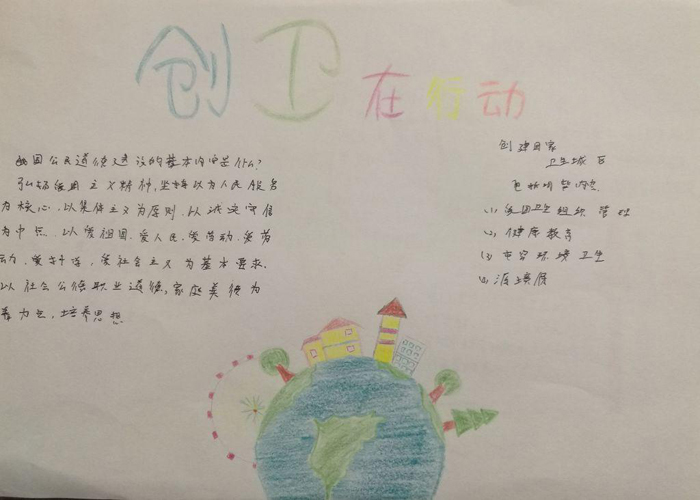 创卫在行动
我国公民道德建设的基本内容是什么?
弘扬爱国主义精神,坚持以为人民服务
为核心,以集体主义为原则,以诚实守信
为中点,以爱祖国,爱人民,爱劳动,爱劳
动,爱科学,爱社会主义为基本要求.
以社会公德职业道德,家庭美德为
着力点,培养思想
创建国家
卫生城
包括
(1) 爱国卫组织管
(2) 健康教育
(3) 市容环境卫生
(4)